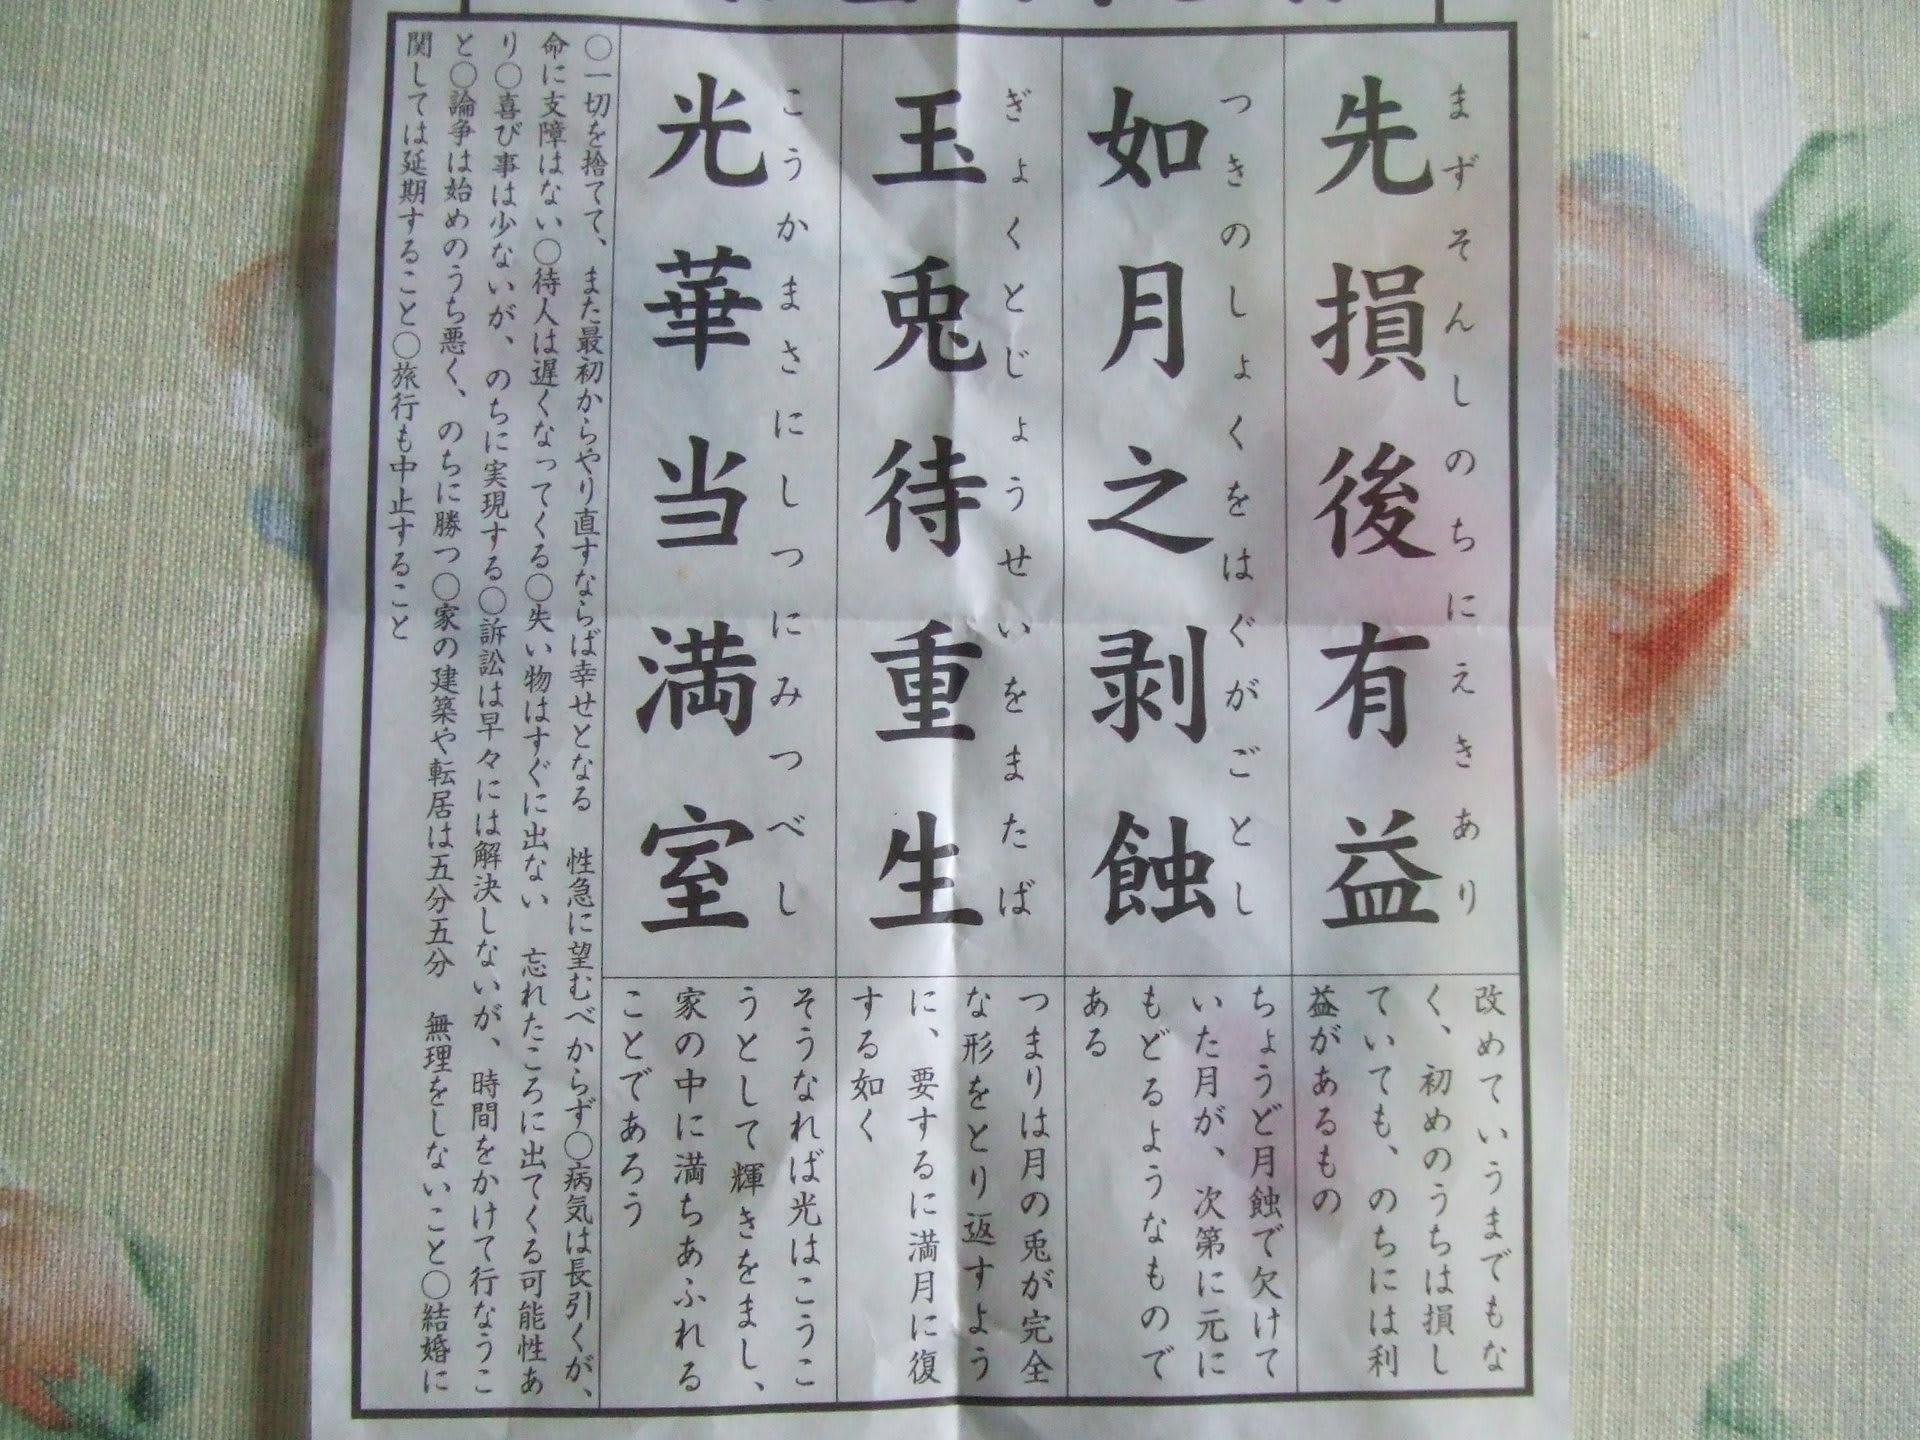 先損後有益
まずそんしのちにえきあり
改めていうまでもな
く、初めのうちは損し
ていても、のちには利
益があるもの
如月之剥蝕
つきのしょくをはぐがごとし
ちょうど月蝕で欠けて
いた月が、次第に元に
もどるようなもので
ある
玉兎待重生
ぎょくとじょうせいをまたば
つまりは月の兎が完全
な形をとり返すよう
に、要するに満月に復
する如く
光華当満室
こうかまさにしつにみつべし
そうなれば光はこうこ
うとして輝きをまし、
家の中に満ちあふれる
ことであろう
○一切を捨てて、また最初からやり直すならば幸せとなる 性急に望むべからず○病気は長引くが、
命に支障はない○待人は遅くなってくる○失い物はすぐに出ない 忘れたころに出てくる可能性あ
り○喜び事は少ないが、のちに実現する○訴訟は早々には解決しないが、時間をかけて行なうこ
と○論争は始めのうち悪く、のちに勝つ○家の建築や転居は五分五分 無理をしないこと○結婚に
関しては延期すること○旅行も中止すること